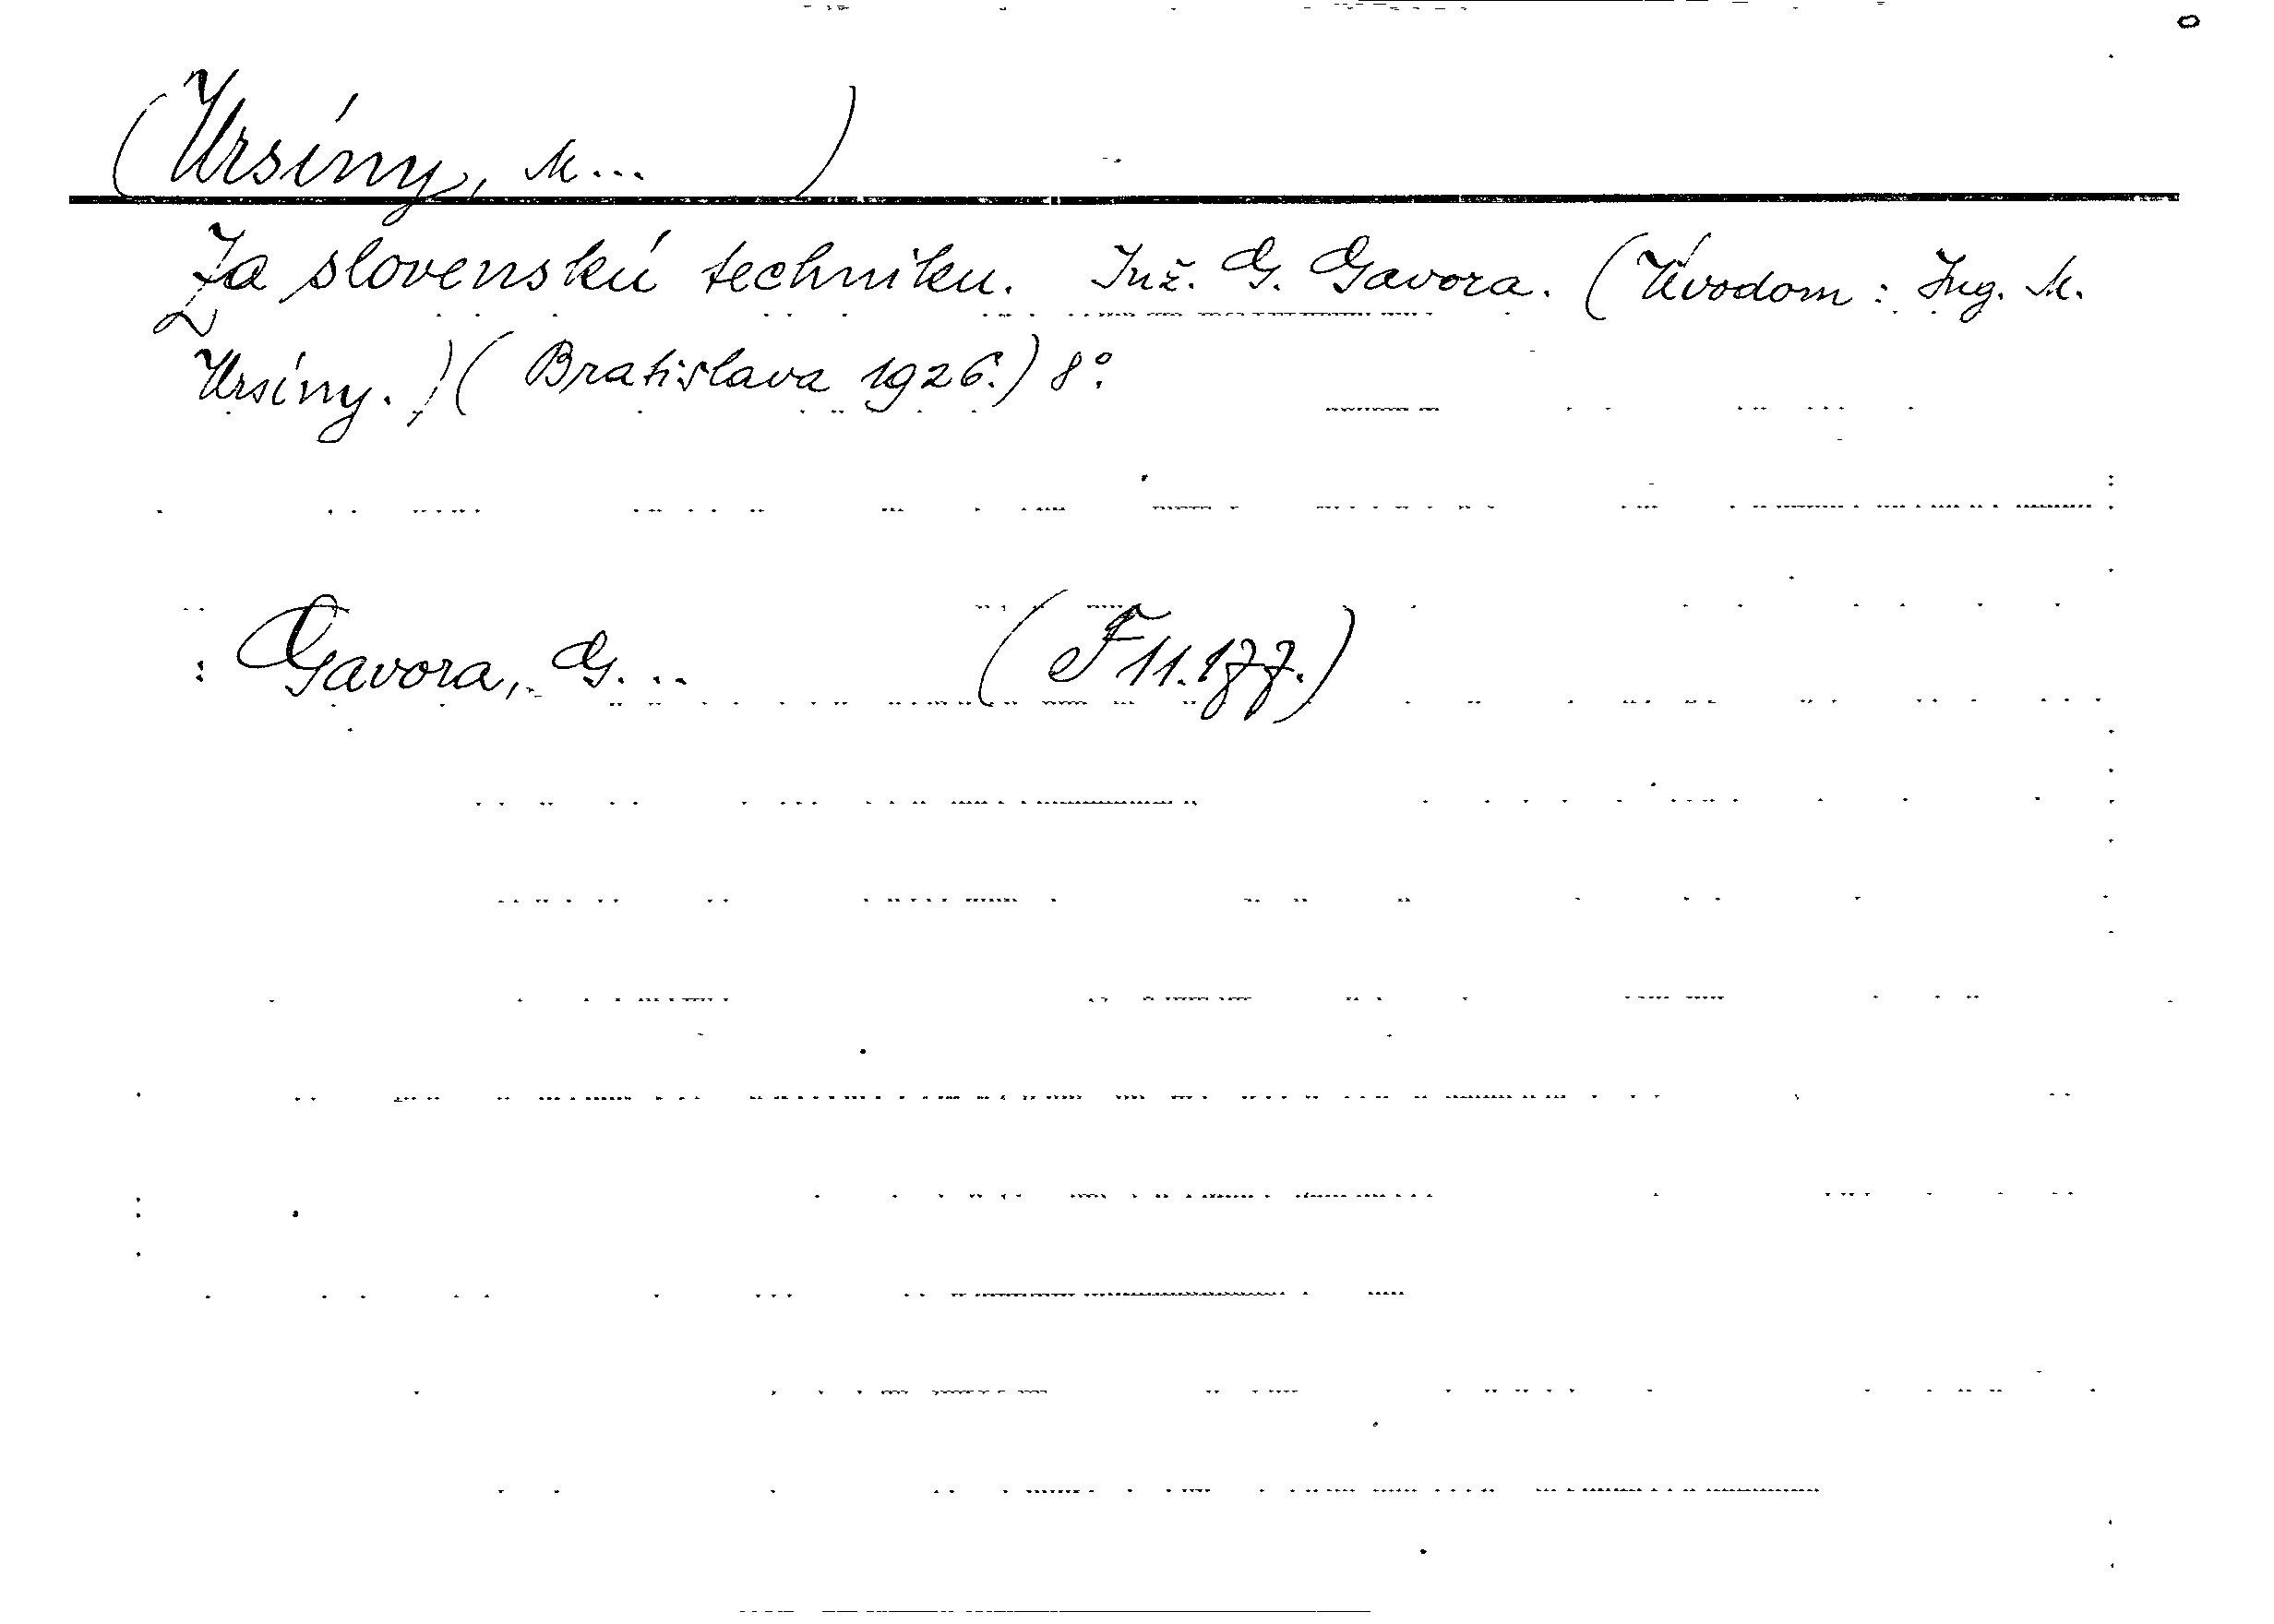 (Ursíny, M... )
Za slovenskú techniku. Inž. G. Gavora. (Úvodom: Ing. M.
Ursíny.) (Bratislava 1926.) 8°.
: Gavora, G... (F 11.177.)